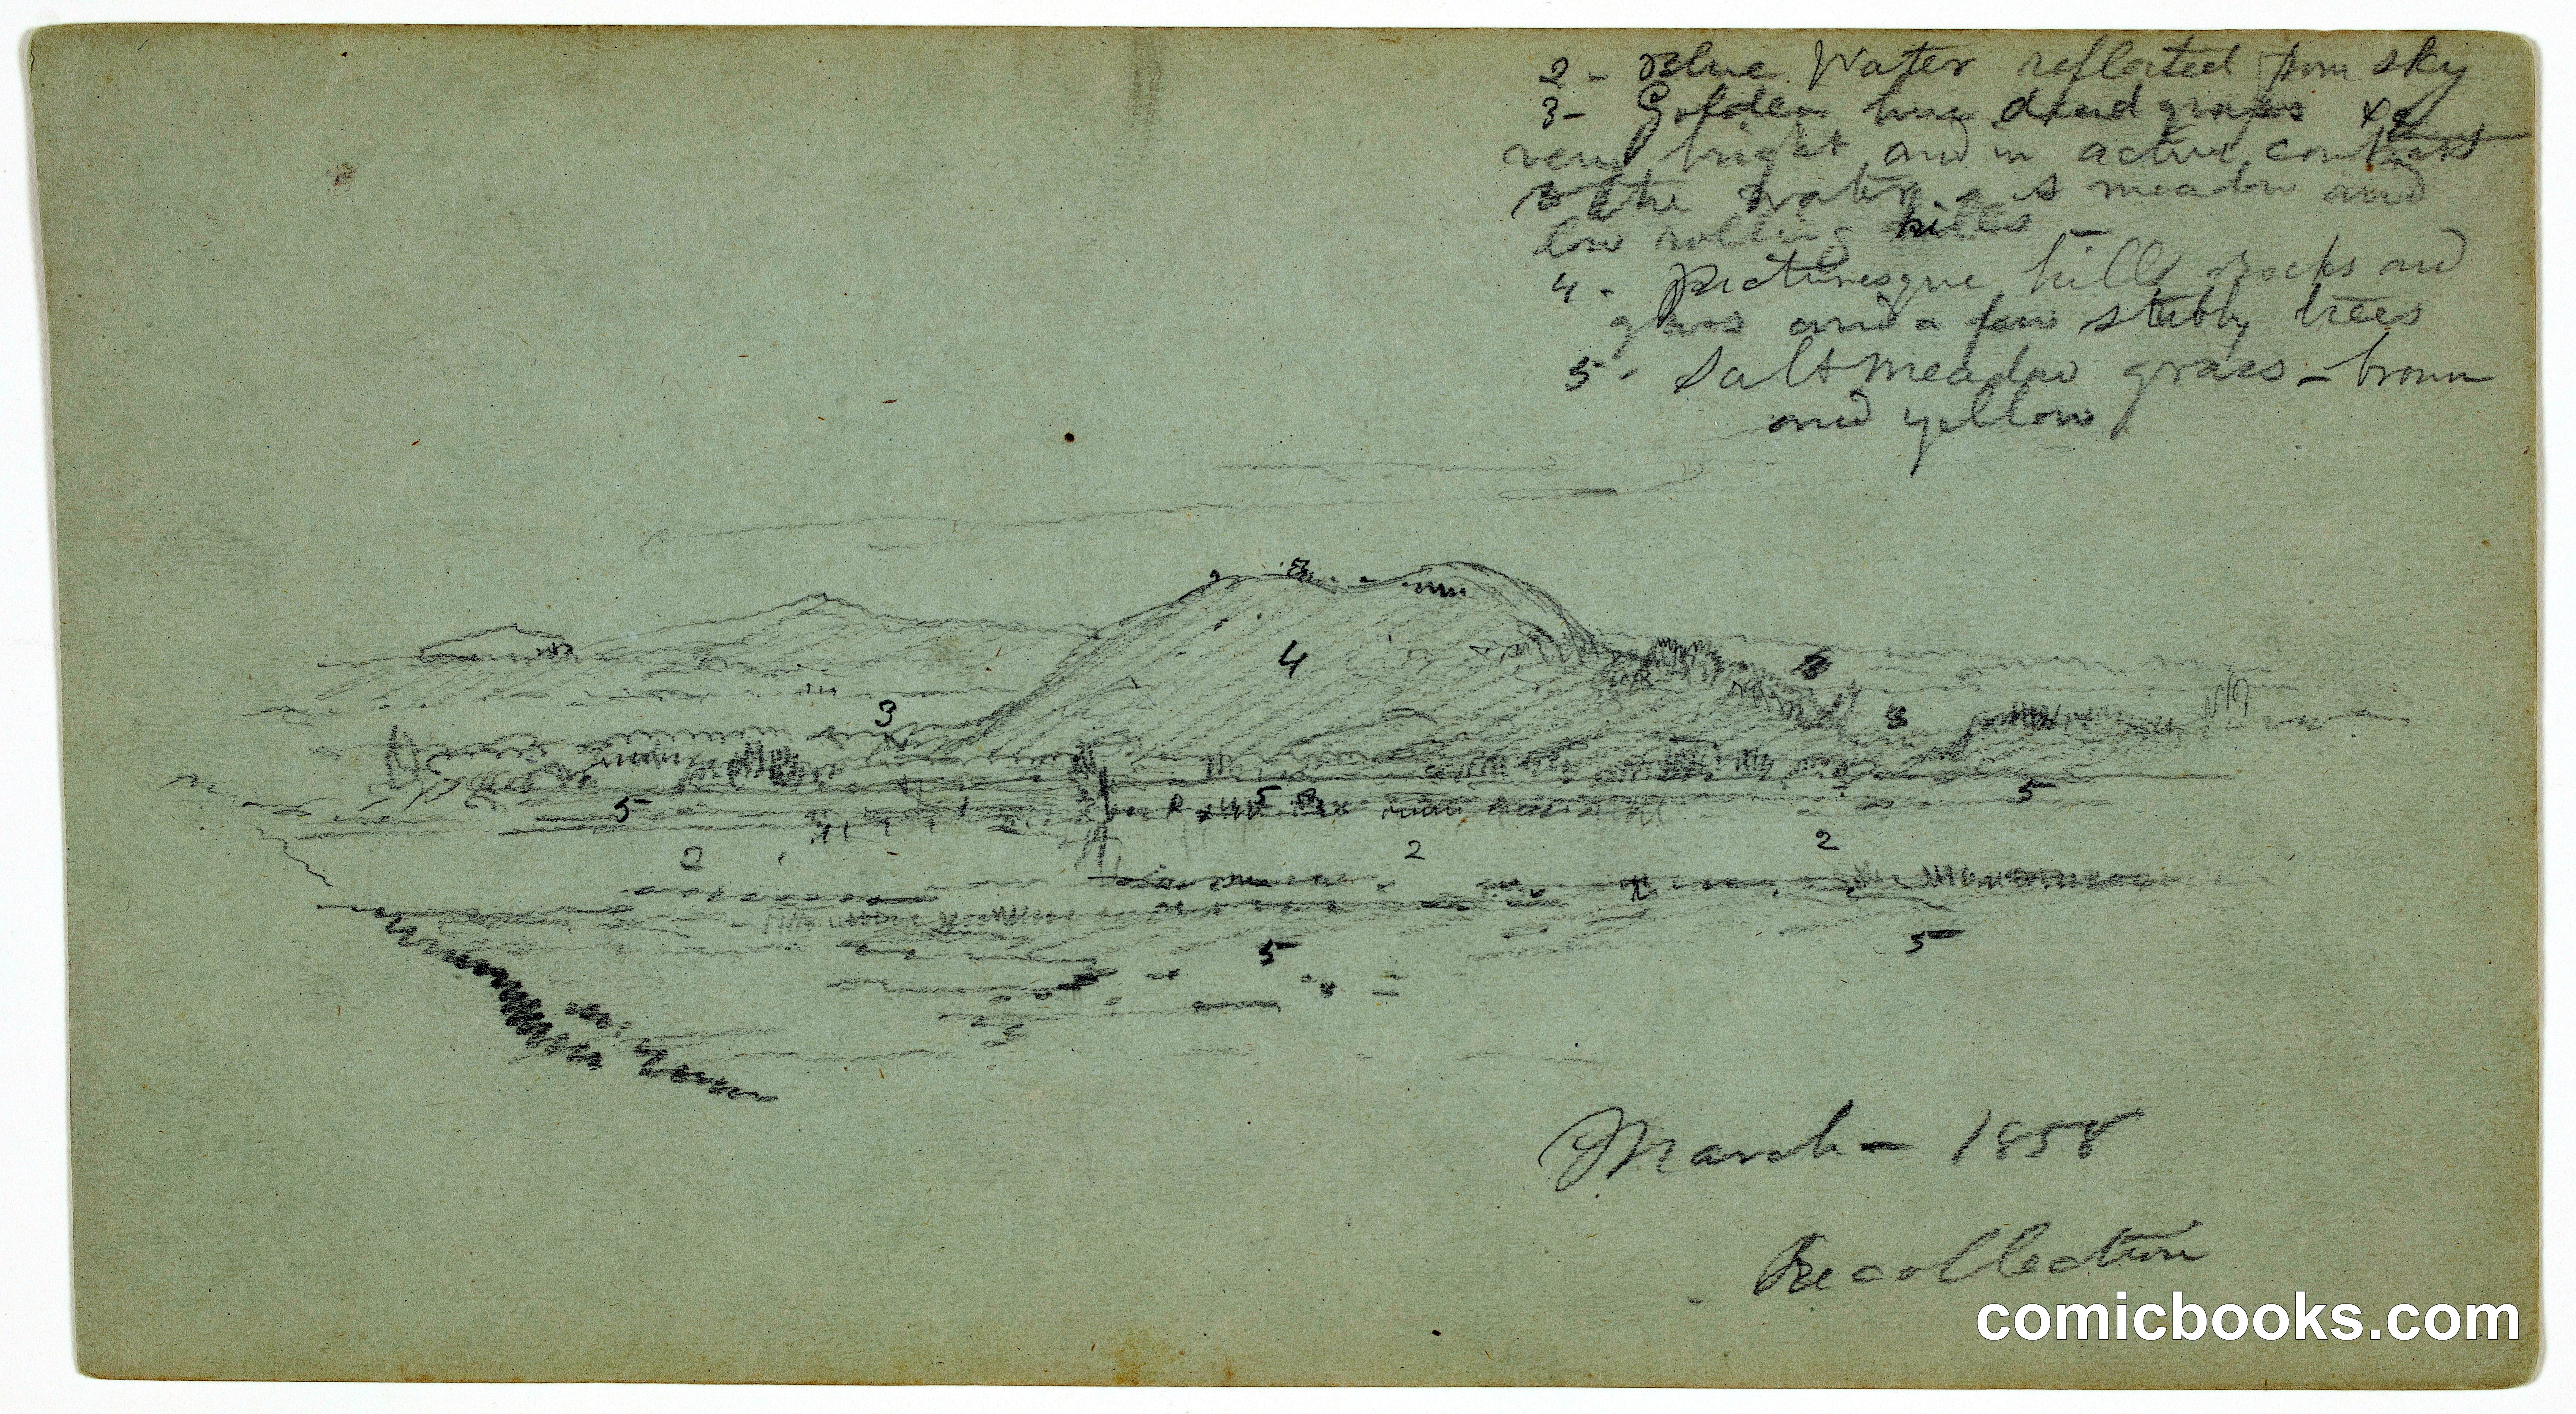 2 - Blue Water reflected from sky
3 - Golden hue dead grass &c
very bright and in active contrast
the water is meadow and
low rolling hills -
4 - Picturesque hills rocks and
grass and a few stubby trees
5 - Salt meadow grass - brown
and yellow
4
3
3
5
5
5
2
2
2
5
5
March - 1858
Recollection
comicbooks.com